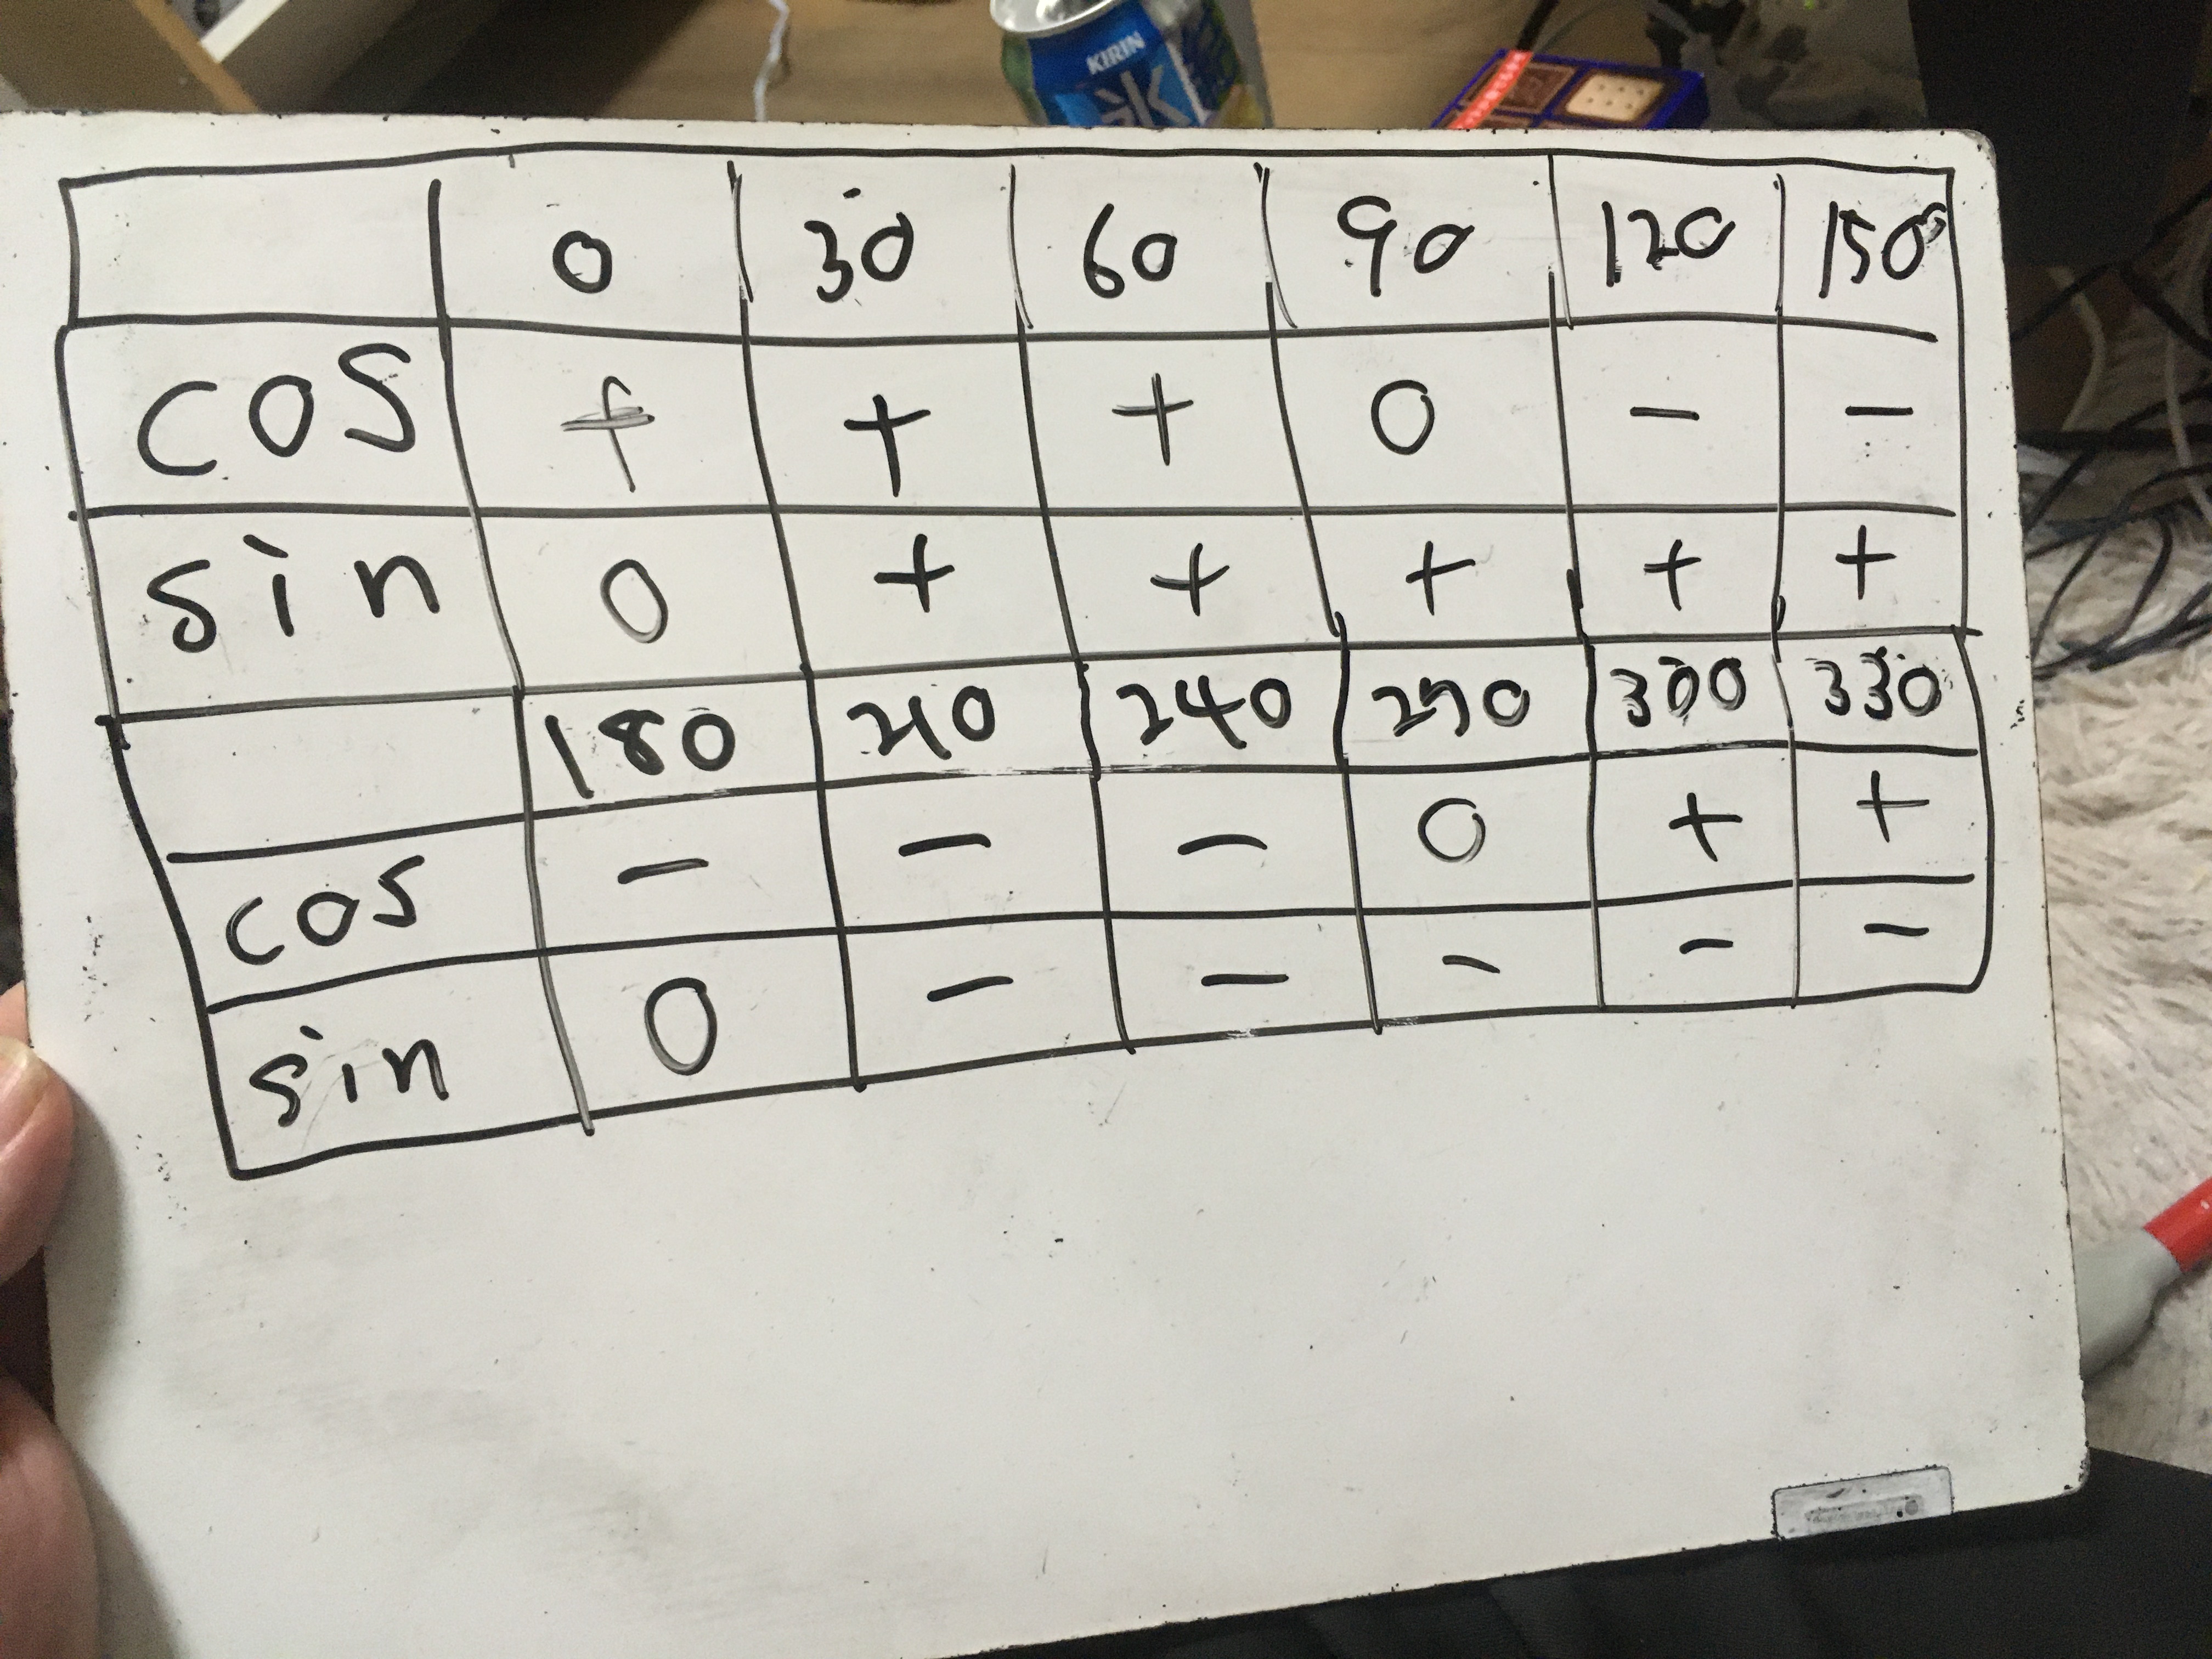 0 30 60 90 120 150
cos + + + 0 - -
sin 0 + + + + +
180 210 240 270 300 330
cos - - - 0 + +
sin 0 - - - - -
KIRIN
氷